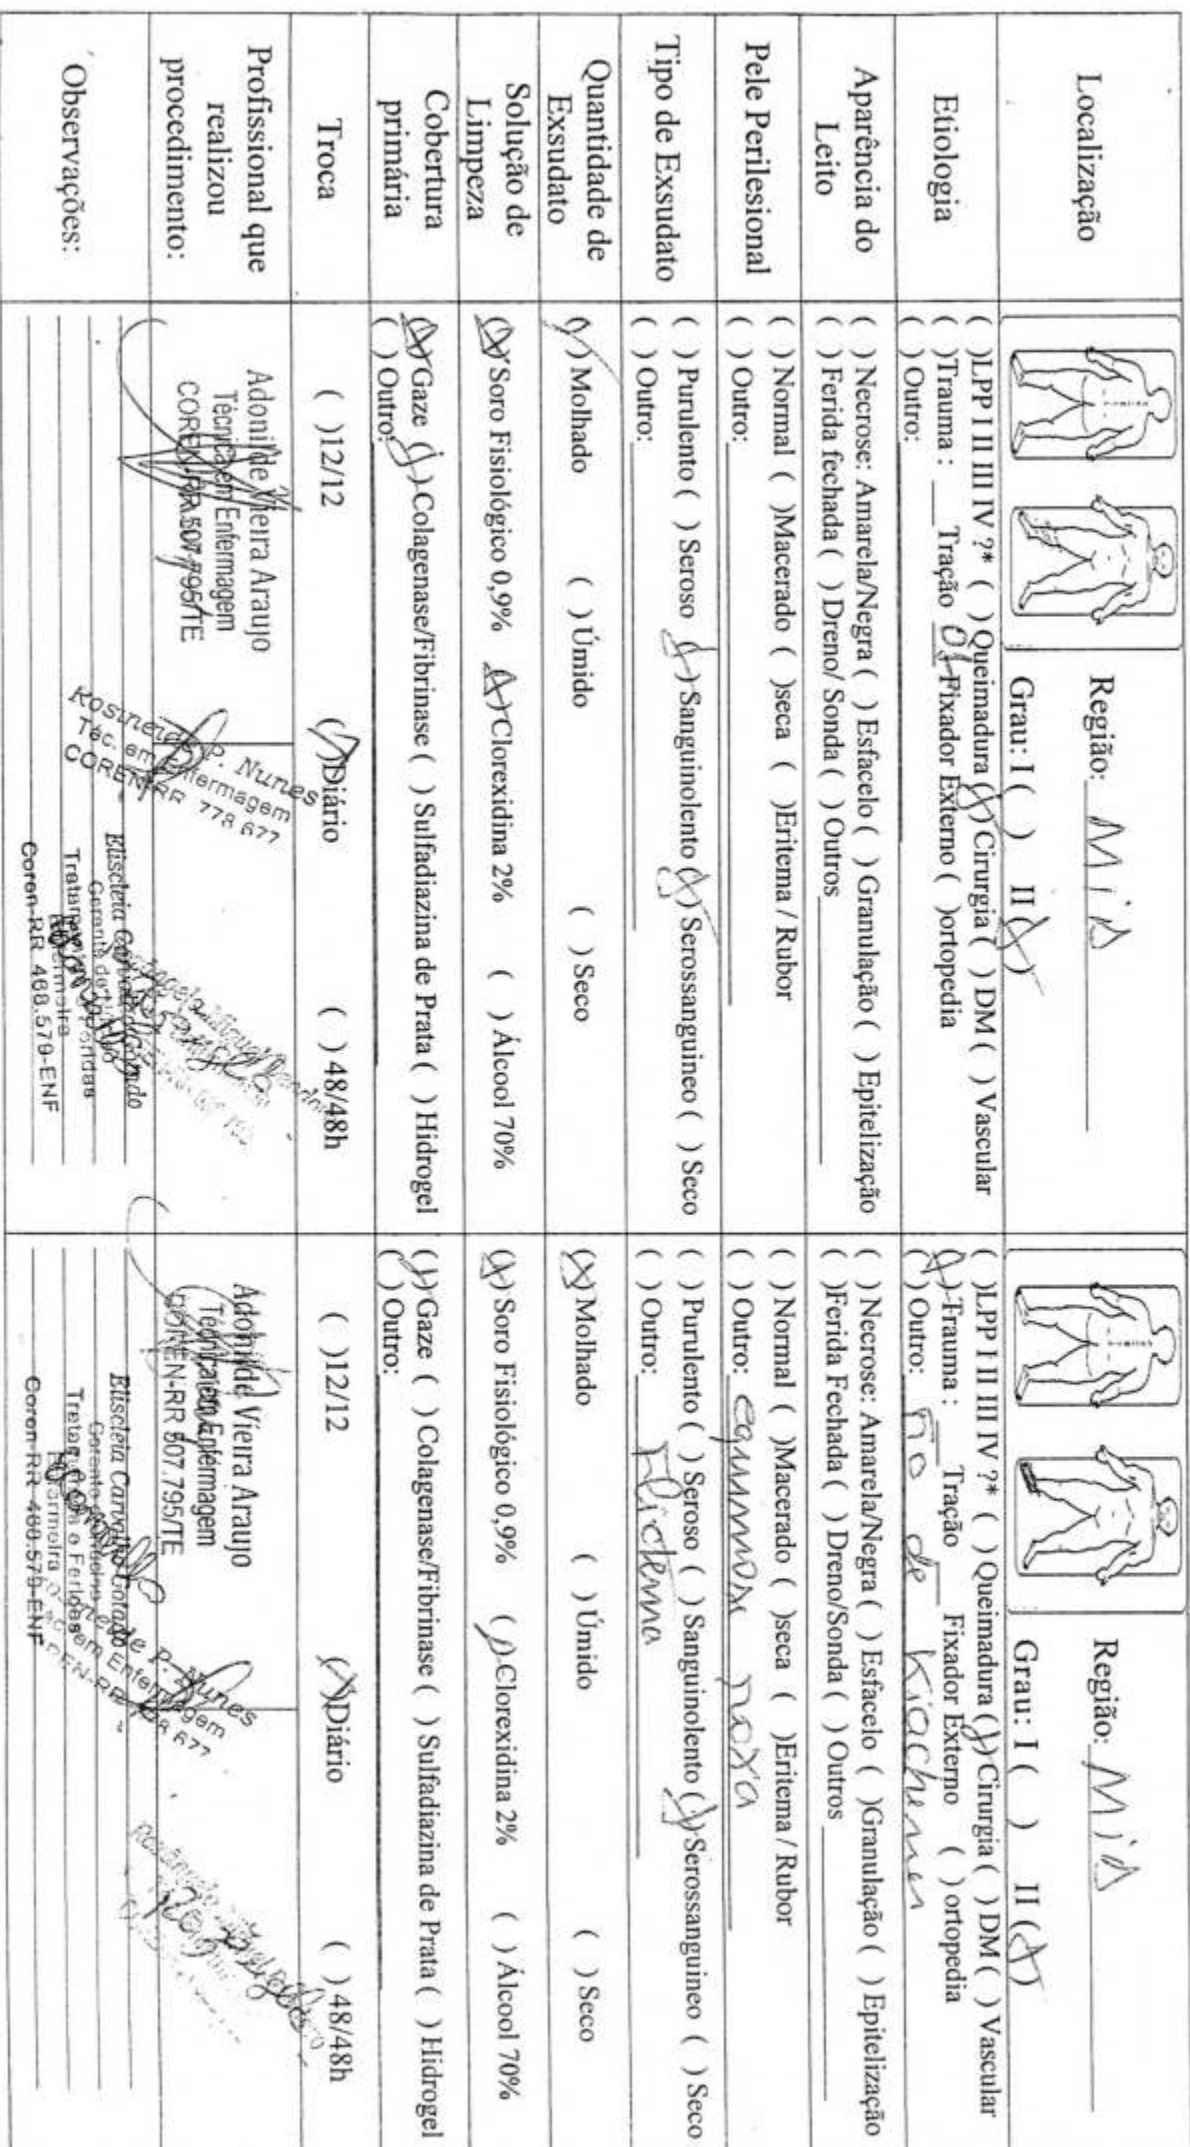 Localização
Região: Mid
Grau: I ( ) II (X)
Região: Mid
Grau: I ( ) II (X)
Etiologia
( )LPP I II III IV ?* ( ) Queimadura (X) Cirurgia ( ) DM ( ) Vascular
( )Trauma : ___ Tração 01 Fixador Externo ( )ortopedia
( ) Outro:
( )LPP I II III IV ?* ( ) Queimadura (X) Cirurgia ( ) DM ( ) Vascular
(X)Trauma : ___ Tração ___ Fixador Externo ( ) ortopedia
( ) Outro: Fio de Kiachener
Aparência do
Leito
( ) Necrose: Amarela/Negra ( ) Esfacelo ( ) Granulação ( ) Epitelização
( ) Ferida fechada ( ) Dreno/ Sonda ( ) Outros
( ) Necrose: Amarela/Negra ( ) Esfacelo ( )Granulação ( ) Epitelização
( )Ferida Fechada ( ) Dreno/Sonda ( ) Outros
Pele Perilesional
( ) Normal ( )Macerado ( )seca ( )Eritema / Rubor
( ) Outro:
( ) Normal ( )Macerado ( )seca ( )Eritema / Rubor
( ) Outro: equimose roxa
Tipo de Exsudato
( ) Purulento ( ) Seroso (X) Sanguinolento (X) Serossanguineo ( ) Seco
( ) Outro:
( ) Purulento ( ) Seroso ( ) Sanguinolento (X) Serossanguineo ( ) Seco
( ) Outro: Flictema
Quantidade de
Exsudato
(X) Molhado ( ) Úmido ( ) Seco
(X) Molhado ( ) Úmido ( ) Seco
Solução de
Limpeza
(X) Soro Fisiológico 0,9% (X) Clorexidina 2% ( ) Álcool 70%
(X) Soro Fisiológico 0,9% (X) Clorexidina 2% ( ) Álcool 70%
Cobertura
primária
(X) Gaze (X) Colagenase/Fibrinase ( ) Sulfadiazina de Prata ( ) Hidrogel
( ) Outro:
(X) Gaze ( ) Colagenase/Fibrinase ( ) Sulfadiazina de Prata ( ) Hidrogel
( ) Outro:
Troca
( )12/12 (X)Diário ( ) 48/48h
( )12/12 (X)Diário ( ) 48/48h
Profissional que
realizou
procedimento:
Adonilde Vieira Araujo
Técnica em Enfermagem
COREN-RR 507.795/TE
Rosineide P. Nunes
Téc. em Enfermagem
COREN-RR 778 677
Adonilde Vieira Araujo
Técnica em Enfermagem
COREN-RR 507.795/TE
P. Nunes
em Enfermagem
778 677
Observações:
Eliscleia Carvalho
Gerente do
Tratamento Feridas
Enfermeira
Coren-RR 468.579-ENF
Eliscleia Carvalho
Gerente
Tratamento e Feridas
Enfermeira
Coren-RR 468.579-ENF